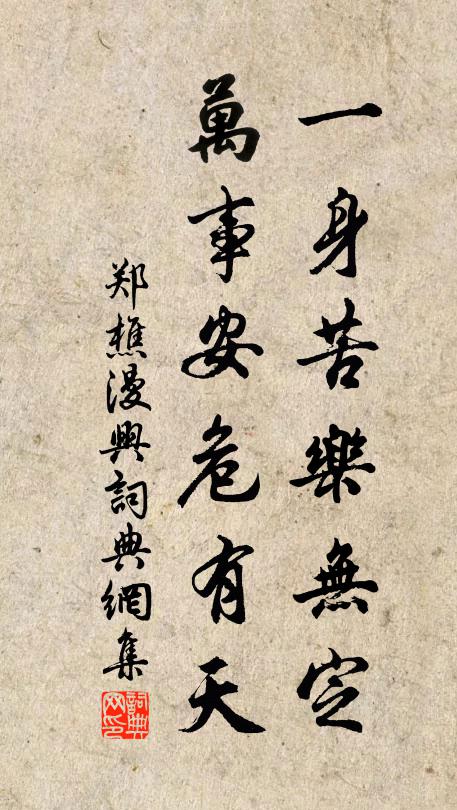 一身苦樂無定
萬事安危有天
郑樵漫興詞典網集
詞典网印